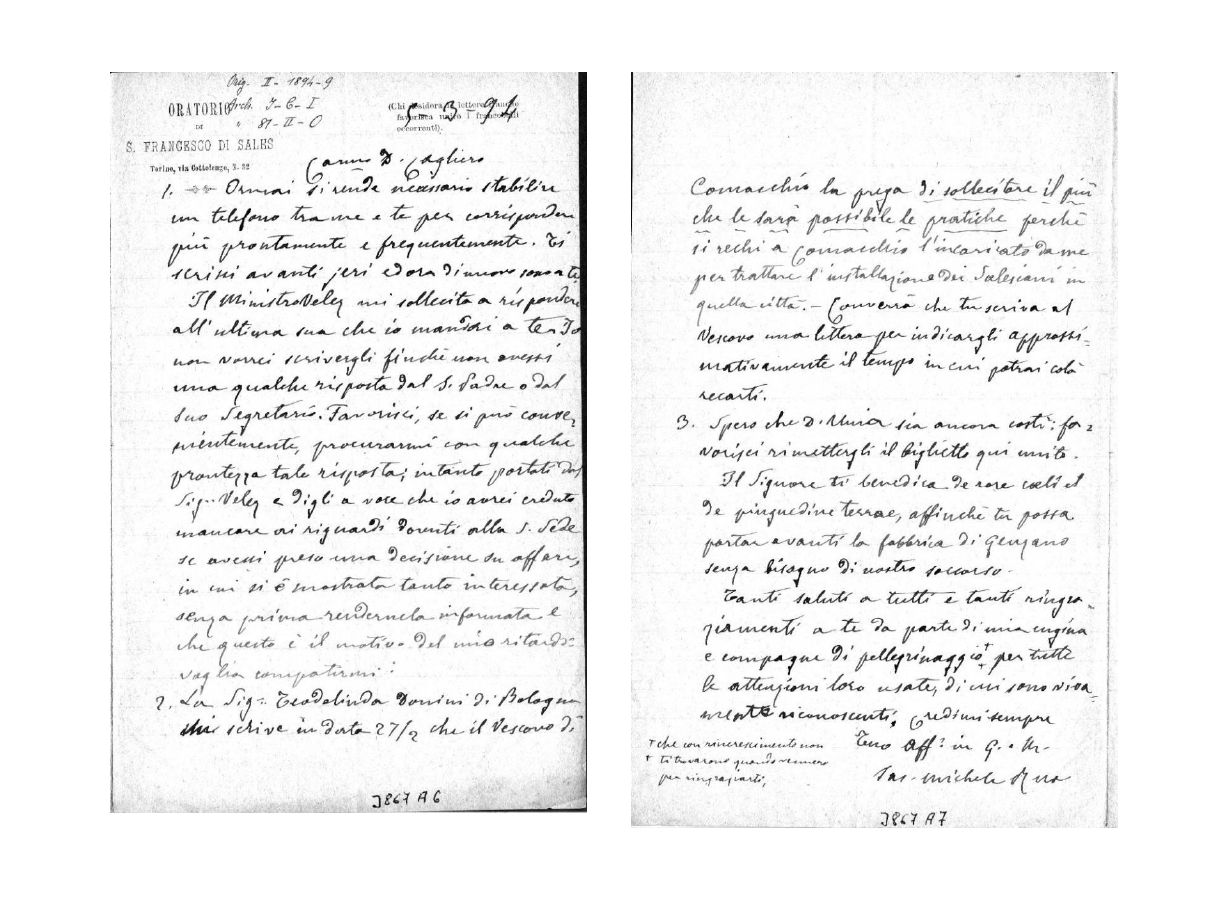 Orig. II - 1894-9
ORATORIO Arch. J-C-I
DI " 81-II-O
S. FRANCESCO DI SALES
Torino, via Cottolengo, N. 32
(Chi desidera lettera
favorisca unire i francobolli
occorrenti).
5-3-94
Carmo D. Cagliero
1. Ormai si rende necessario stabilire
un telefono tra me e te per corrispondere
più prontamente e frequentemente. Ti
scrissi avanti jeri ed ora di nuovo sono a te.
Il Ministro Velez mi sollecita a rispondere
all'ultima sua che io mandai a te. Io
non vorrei scrivergli finchè non avessi
una qualche risposta dal S. Padre o dal
suo Segretario. Favorisci, se si può conve-
nientemente, procurarmi con qualche
prontezza tale risposta; intanto portati dal
Sig.r Velez e digli a voce che io avrei creduto
mancare ai riguardi dovuti alla S. Sede
se avessi preso una decisione su affare,
in cui si è mostrata tanto interessata,
senza prima rendernela informata e
che questo è il motivo del mio ritardo:
voglia compatirmi!
2. La Sig.ra Teodolinda Donini di Bologna
mi scrive in data 27/2 che il Vescovo di
J867 A6
Comacchio la prega di sollecitare il più
che le sarà possibile le pratiche perchè
si rechi a Comacchio l'incaricato da me
per trattare l'installazione dei Salesiani in
quella città. - Converrà che tu scriva al
Vescovo una lettera per indicargli approssi-
mativamente il tempo in cui potrai colà
recarti.
3. Spero che D. Unia sia ancora costì: fa-
vorisci rimettergli il biglietto qui unito.
Il Signore ti benedica de rore cœli et
de pinguedine terrae, affinchè tu possa
portar avanti la fabbrica di Genzano
senza bisogno di nostro soccorso.
Tanti saluti a tutti e tanti ringra-
ziamenti a te da parte di mia cugina
e compagne di pellegrinaggio † per tutte
le attenzioni loro usate, di cui sono viva-
mente riconoscenti, Credimi sempre
† che con rincrescimento non
ti trovarono quando vennero
per ringraziarti,
Tuo Aff.o in G. e M.
Sac. Michele Rua
J867 A7